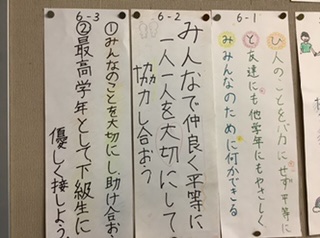 6-1
ひ人のことをバカにせず平等に
と友達にも他学年にもやさしく
みみんなのために何かできる
6-2
みんなで仲良く平等に
一人一人を大切にして
協力し合おう
6-3
①みんなのことを大切にし、助け合お
②最高学年として下級生に
優しく接しよう。